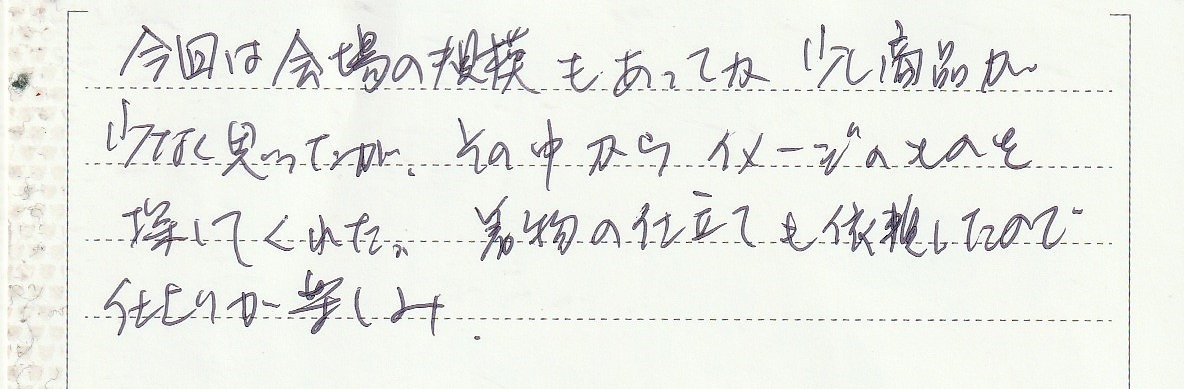 今回は会場の規模もあってか 少し商品が
少なく思ったが、その中からイメージのものを
探してくれた。着物の仕立ても依頼したので
仕上りが楽しみ.